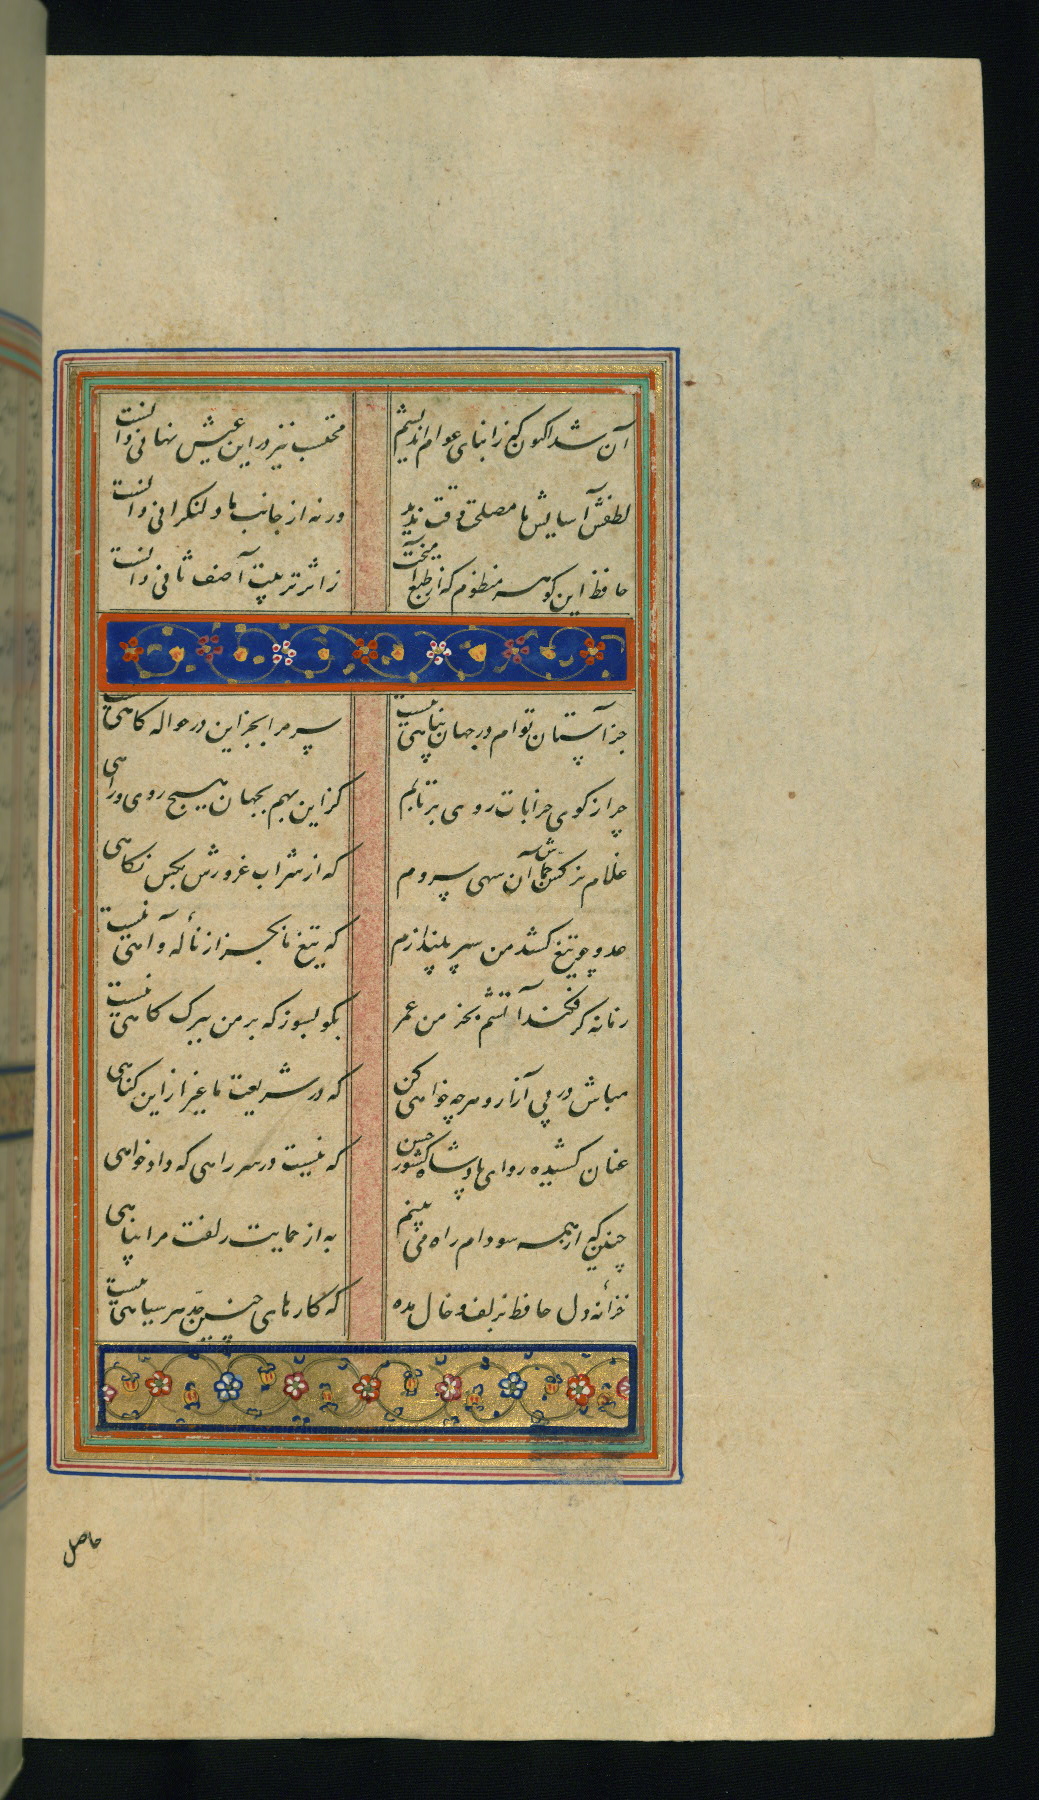 آن شد اکنون که ز ابنای عوام اندیشم محتسب نیز در این عیش نهانی دانست
لطفش آسایش ما مصلحت وقت ندید ورنه از جانب ما دلنگرانی دانست
حافظ این گوهر منظوم که از طبع انگیخت ز اثر تربیت آصف ثانی دانست
جز آستان توام در جهان پناهی نیست سر مرا بجز این در حواله گاهی نیست
چرا ز کوی خرابات روی برتابم کز این بهم بجهان هیچ روی و راهی
غلام نرگس جماش آن سهی سروم که از شراب غرورش بکس نگاهی
عدو چو تیغ کشد من سپر بیندازم که تیغ ما بجز از ناله و آهی نیست
زمانه گر فکند آتشم بخرمن عمر بگو بسوز که بر من ببرک کاهی نیست
مباش در پی آزار و هر چه خواهی کن که در شریعت ما غیر از این گناهی
عنان کشیده رو ای پادشاه کشور حسن که نیست در سر راهی که دادخواهی
چنین که از همه سو دام راه می بینم به از حمایت زلفت مرا پناهی
خزانه دل حافظ بزلف و خال مده که کارهای چنین حد هر سیاهی نیست
حاصل